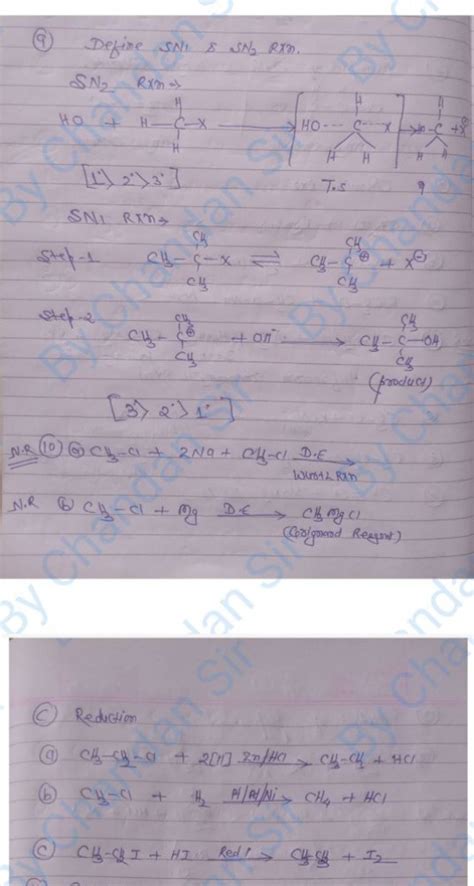 (9) Define SN1 & SN2 Rxn.
SN2 Rxn →
H
HO + H—C—X → [HO--- C---X] → HO-C + X
H H H
[1°> 2°>3°] T.S
SN1 Rxn →
CH3 CH3
Step-1 CH3—C—X ⇌ CH3—C⊕ + X⊖
CH3 CH3
Step-2 CH3 CH3
CH3—C⊕ + OH⁻ → CH3—C—OH
CH3 CH3
(product)
[3°> 2°> 1°]
N.R (10) (a) CH3-Cl + 2Na + CH3-Cl D.E →
Wurtz Rxn
N.R (b) CH3-Cl + Mg D.E → CH3MgCl
(Gorignard Reagent)
(C) Reduction
(a) CH3-CH2-Cl + 2[H] Zn/HCl → CH3-CH3 + HCl
(b) CH3-Cl + H2 Pt/Pd/Ni → CH4 + HCl
(c) CH3-CH2I + HI Red P → CH3CH3 + I2
By Chandan Sir